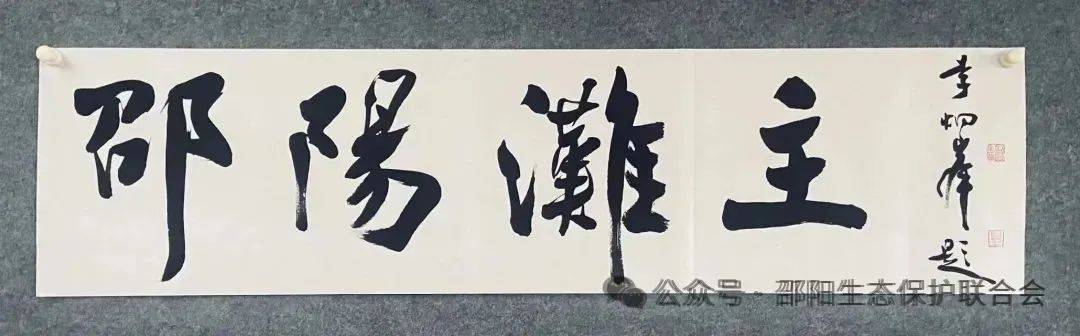 邵陽灘主
李炯峰题
公众号·邵阳生态保护联合会